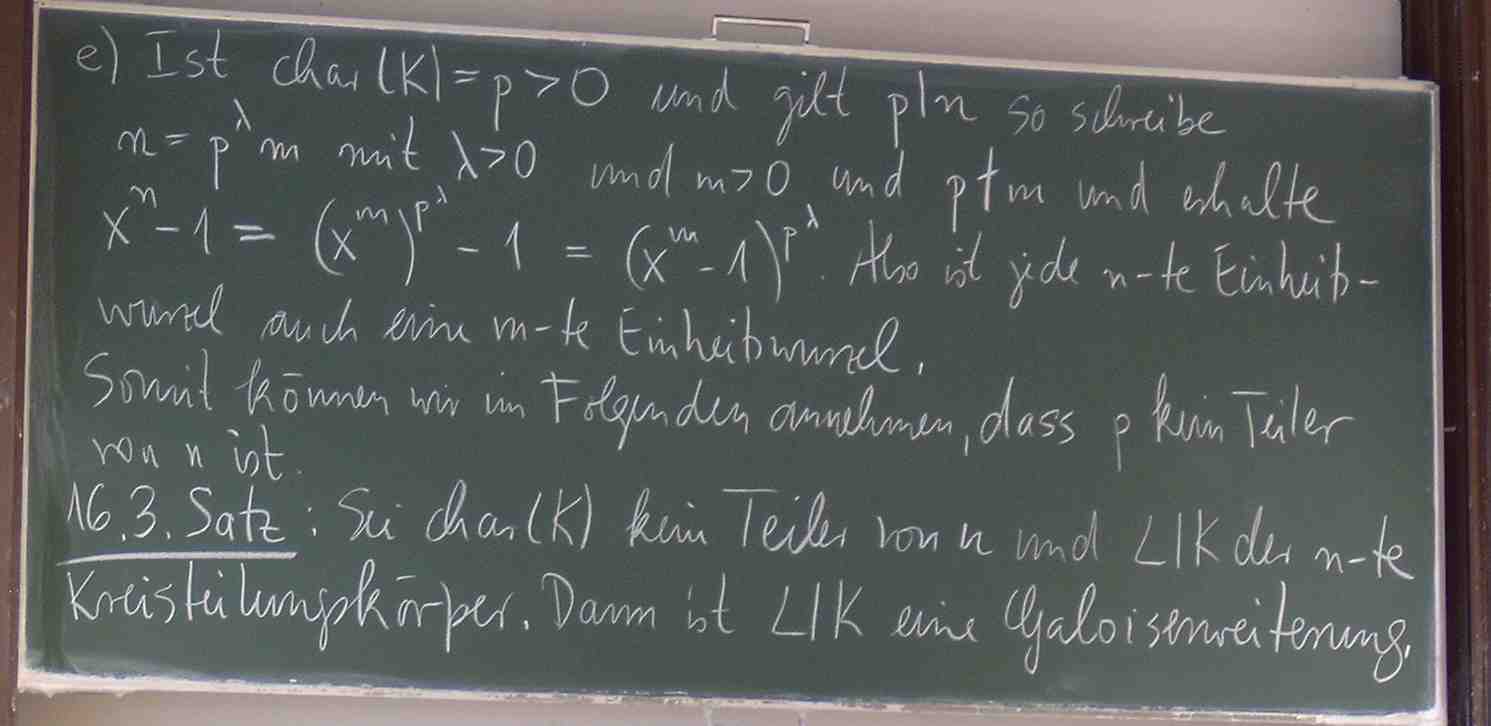 e) Ist char(K) = p > 0 und gilt p|n so schreibe
n = p^λ m mit λ>0 und m>0 und p∤m und erhalte
x^n - 1 = (x^m)^{p^λ} - 1 = (x^m - 1)^{p^λ}. Also ist jede n-te Einheits-
wurzel auch eine m-te Einheitswurzel.
Somit können wir im Folgenden annehmen, dass p kein Teiler
von n ist.
16.3. Satz: Sei char(K) kein Teiler von n und L|K der n-te
Kreisteilungskörper. Dann ist L|K eine Galoiserweiterung.